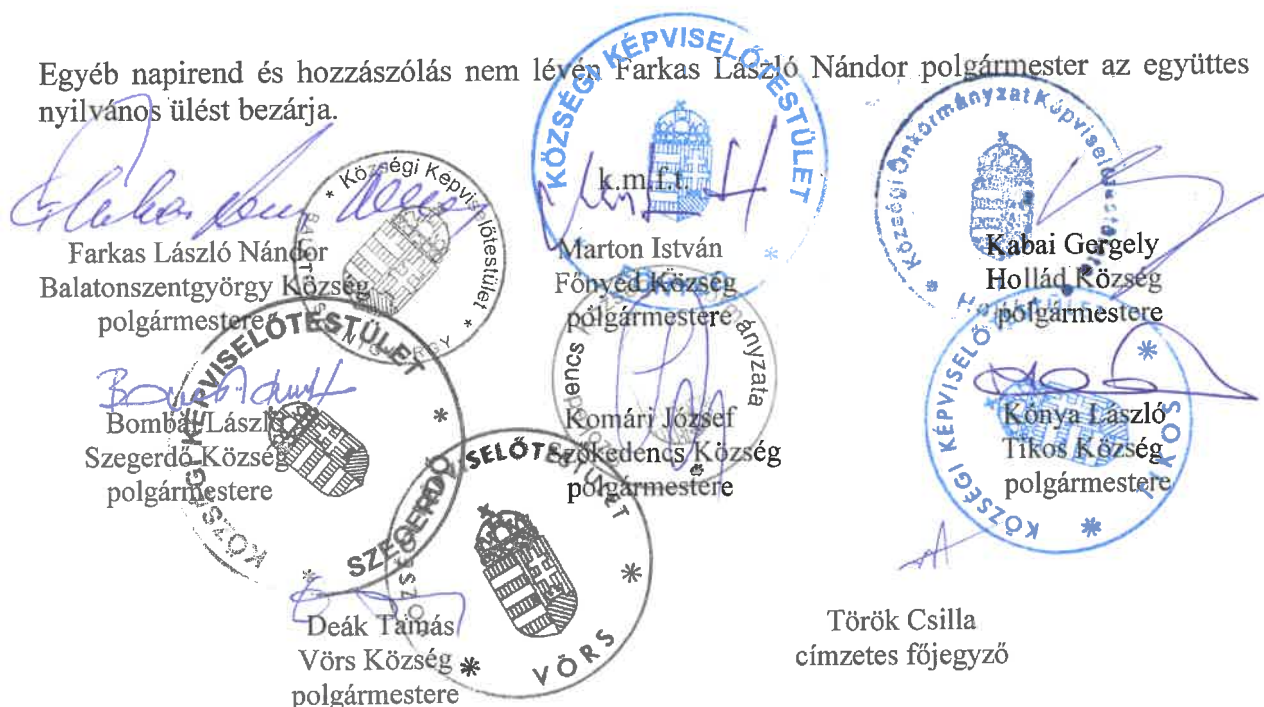 Egyéb napirend és hozzászólás nem lévén Farkas László Nándor polgármester az együttes
nyilvános ülést bezárja.
k.m.f.t.
Farkas László Nándor
Balatonszentgyörgy Község
polgármestere
Marton István
Főnyed Község
polgármestere
Kabai Gergely
Hollád Község
polgármestere
Bombai László
Szegerdő Község
polgármestere
Komári József
Szőkedencs Község
polgármestere
Kónya László
Tikos Község
polgármestere
Deák Tamás
Vörs Község
polgármestere
Török Csilla
címzetes főjegyző
* Községi Képviselőtestület *
KÖZSÉGI KÉPVISELŐTESTÜLET
* Községi Önkormányzat Képviselő
KÖZSÉGI KÉPVISELŐTESTÜLET
* SZEGERDŐ *
KÖZSÉGI KÉPVISELŐ
* TIKOS *
VISELŐTESTÜLET
* VÖRS *